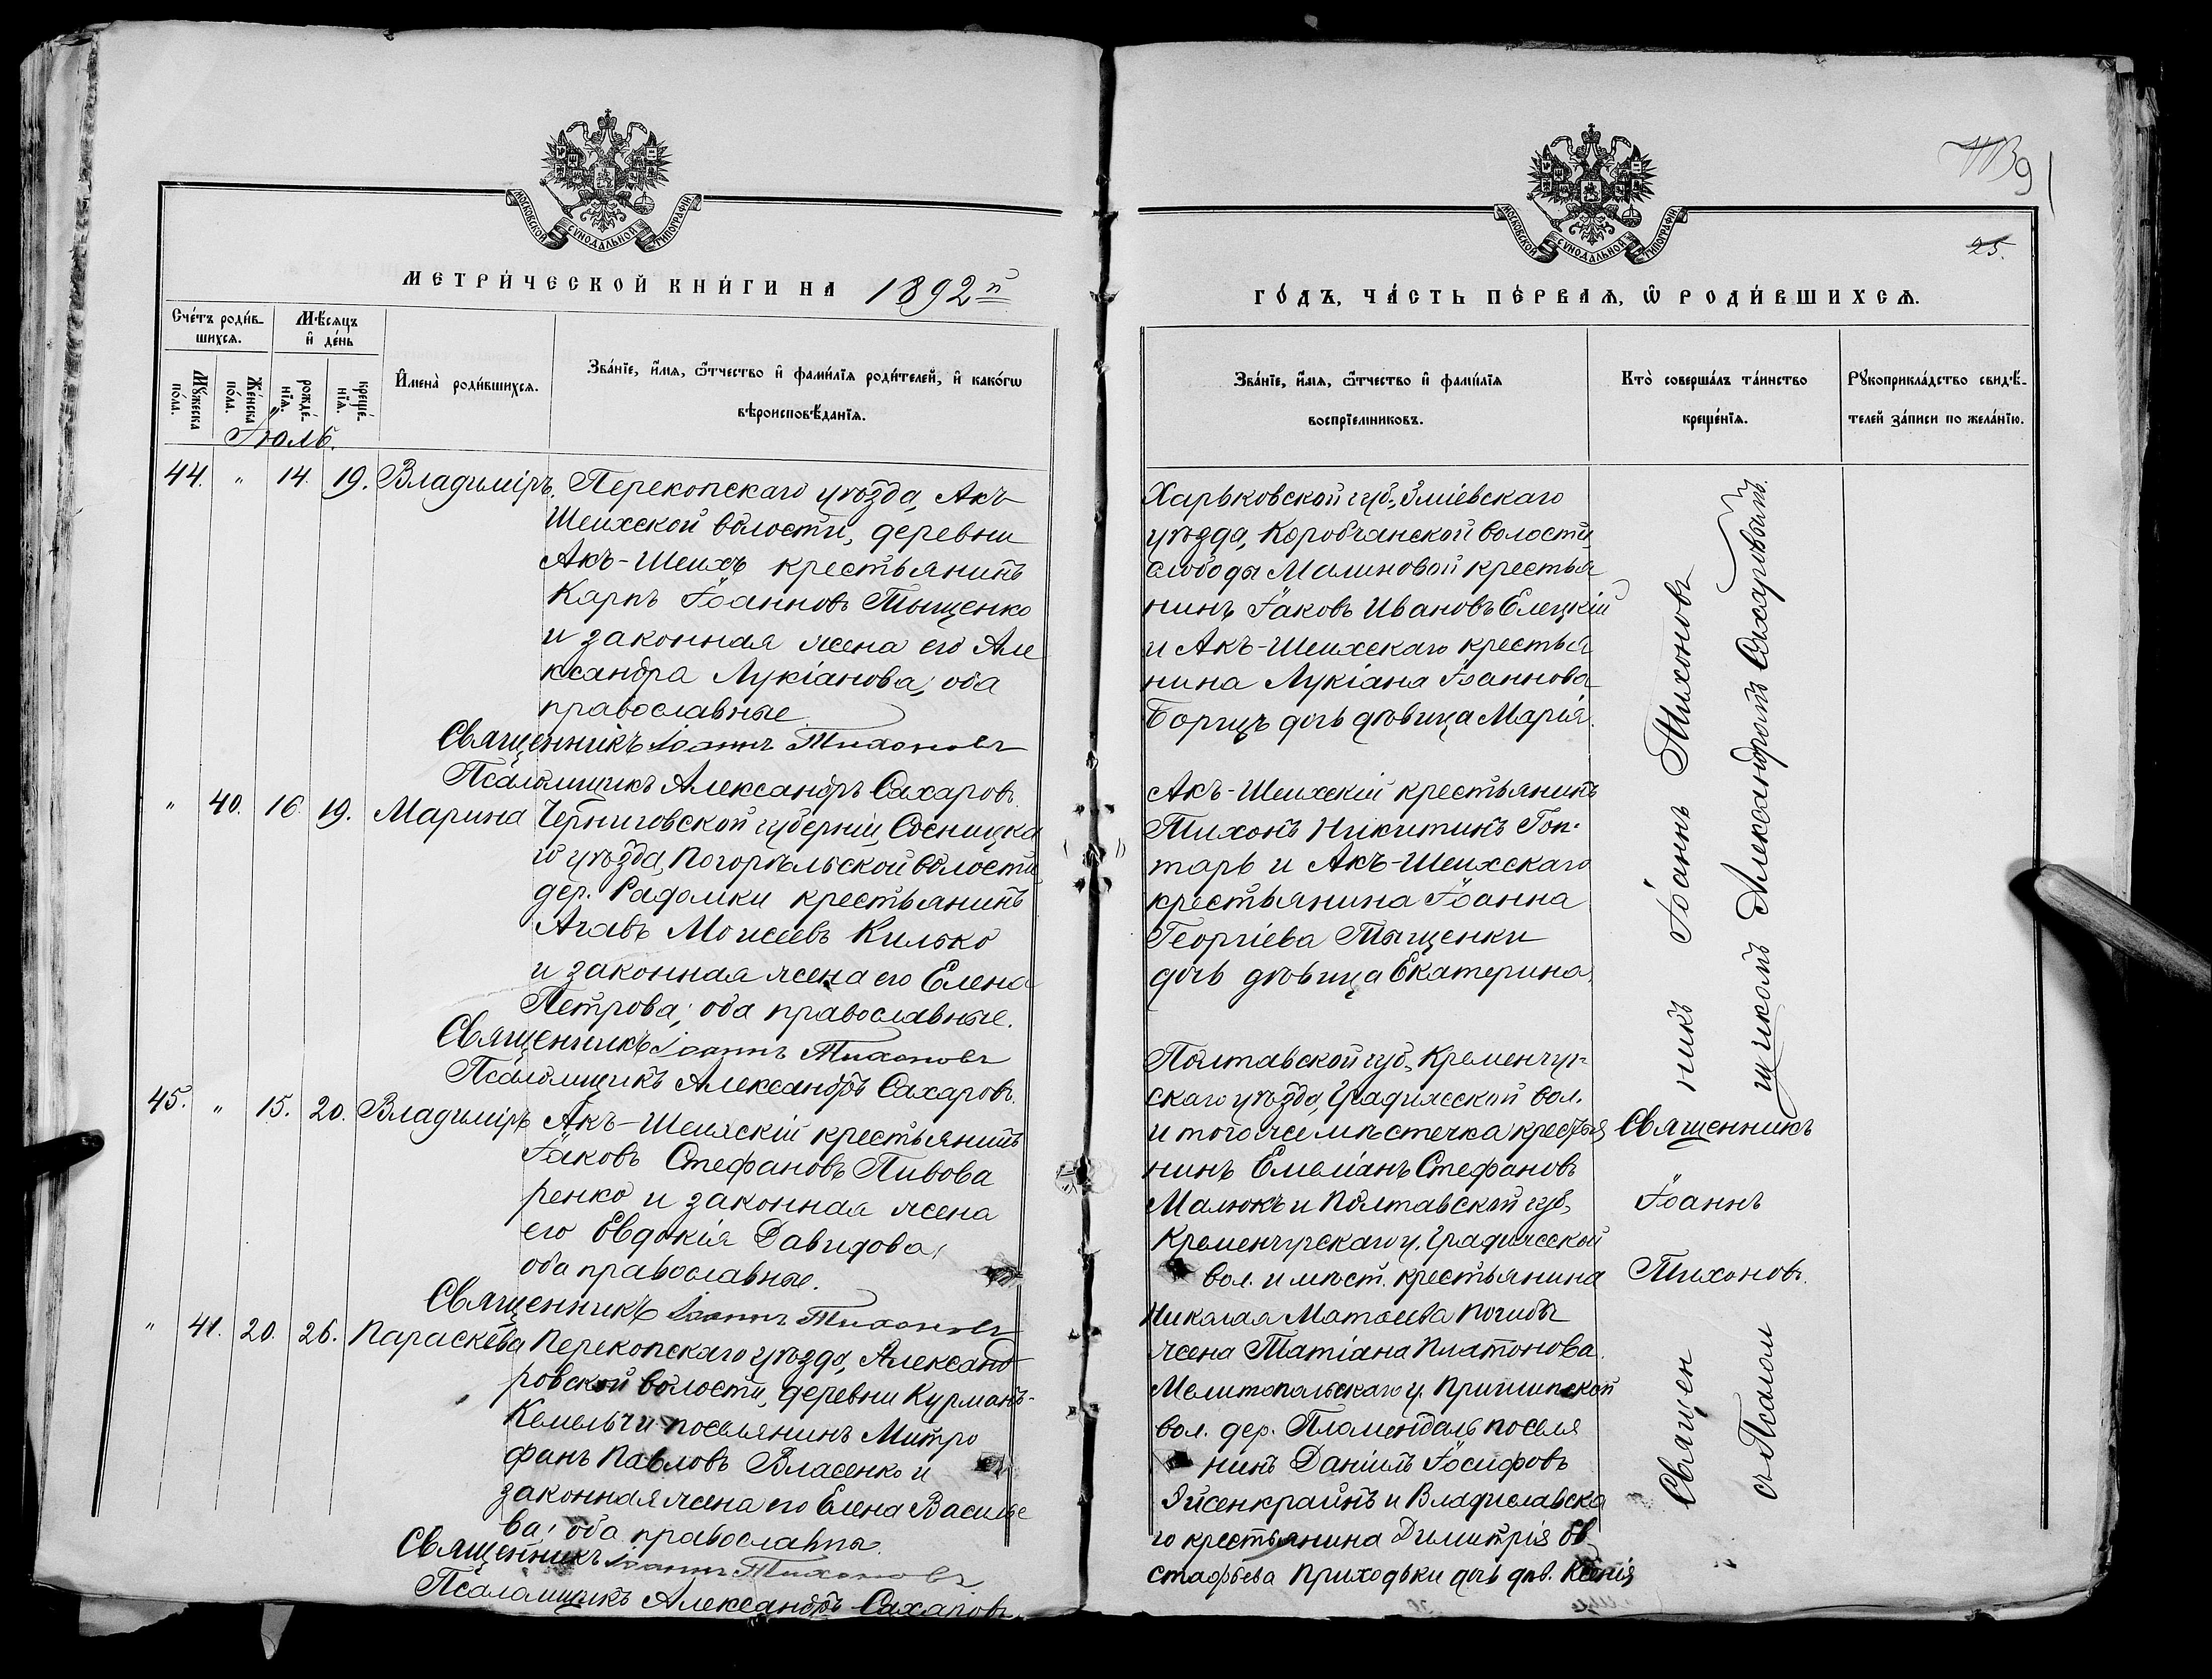 МОСКОВСКОЙ СѴНОДАЛЬНОЙ ТИПОГРАФІИ
МЕТРИ́ЧЕСКОЙ КНИ́ГИ НА 1892й
Сче́тъ роди́в-
шихся.
Мѣ́сяцъ
и҆ де́нь
Мꙋ́жеска
по́ла.
Же́нска
по́ла.
рожде́-
нїя.
креще́-
нїя.
И҆мена̀ роди́вшихся.
Зва́нїе, и҆́мя, ѻ҆́тчество и҆ фами́лїя роди́телей, и҆ како́гѡ
вѣроисповѣ́данїя.
Іюль.
44. " 14. 19. Владиміръ. Перекопскаго уѣзда, Акъ-
Шеихской волости, деревни
Акъ-Шеихъ крестьянинъ
Карпъ Іоанновъ Тыщенко
и законная жена его Але
ксандра Лукіанова; оба
православные.
Священникъ Іоаннъ Тихоновъ
Псаломщикъ Александръ Сахаровъ.
" 40. 16. 19. Марина Черниговской губерніи, Сосницка
го уѣзда, Погорѣльской волости
дер. Радомки крестьянинъ
Агавъ Моисеевъ Килько
и законная жена его Елена
Петрова; оба православные.
Священникъ Іоаннъ Тихоновъ
Псаломщикъ Александръ Сахаровъ.
45. " 15. 20. Владиміръ Акъ-Шеихскій крестьянинъ
Іаковъ Стефановъ Пивова
ренко и законная жена
его Евдокія Давидова,
оба православные.
Священникъ Іоаннъ Тихоновъ
" 41. 20. 26. Параскева Перекопскаго уѣзда, Александ
ровской волости, деревни Курманъ-
Кемельчи поселянинъ Митро
фанъ Павловъ Власенко и
законная жена его Елена Василье
ва; оба православны.
Священникъ Іоаннъ Тихоновъ
Псаломщикъ Александръ Сахаровъ
91
25.
МОСКОВСКОЙ СѴНОДАЛЬНОЙ ТИПОГРАФІИ
ГО́ДЪ, ЧА́СТЬ ПЕ́РВАЯ, Ѡ҆ РОДИ́ВШИХСЯ.
Зва́нїе, и҆́мя, ѻ҆́тчество и҆ фами́лїя
воспрїе́мниковъ.
Кто̀ соверша́лъ та́инство
креще́нїя.
Рꙋкоприкла́дство свидѣ́-
телей за́писи по жела́нїю.
Харьковской губ., Зміевскаго
уѣзда, Коробчанской волости
слободы Малиновой крестья
нинъ Іаковъ Ивановъ Елецкій
и Акъ-Шеихскаго крестья
нина Лукіана Іоаннова
Борщъ дочь дѣвица Марія.
Акъ-Шеихскій крестьянинъ
Тихонъ Никитинъ Гон-
тарь и Акъ-Шеихскаго
крестьянина Іоанна
Георгіева Тыщенки
дочь дѣвица Екатерина.
Полтавской губ., Кременчуг-
скаго уѣзда, Градижской вол.
и того же мѣстечка крестья
нинъ Емеліанъ Стефановъ
Малюкъ и Полтавской губ.
Кременчугскаго у. Градижской
вол. и мѣст. крестьянина
Николая Матѳеева Погибы
жена Татіана Платонова.
Мелитопольскаго у. Пришипской
вол. дер. Пломендаль поселя
нинъ Даніилъ Іосифовъ
Эйсенкрайнъ и Владиславска
го крестьянина Димитрія Ев
стафьева Приходьки дочь дѣв. Ксенія
Священникъ Іоаннъ Тихоновъ
съ Псаломщикомъ Александромъ Сахаровымъ.
Священникъ
"
Іоаннъ
Тихоновъ.